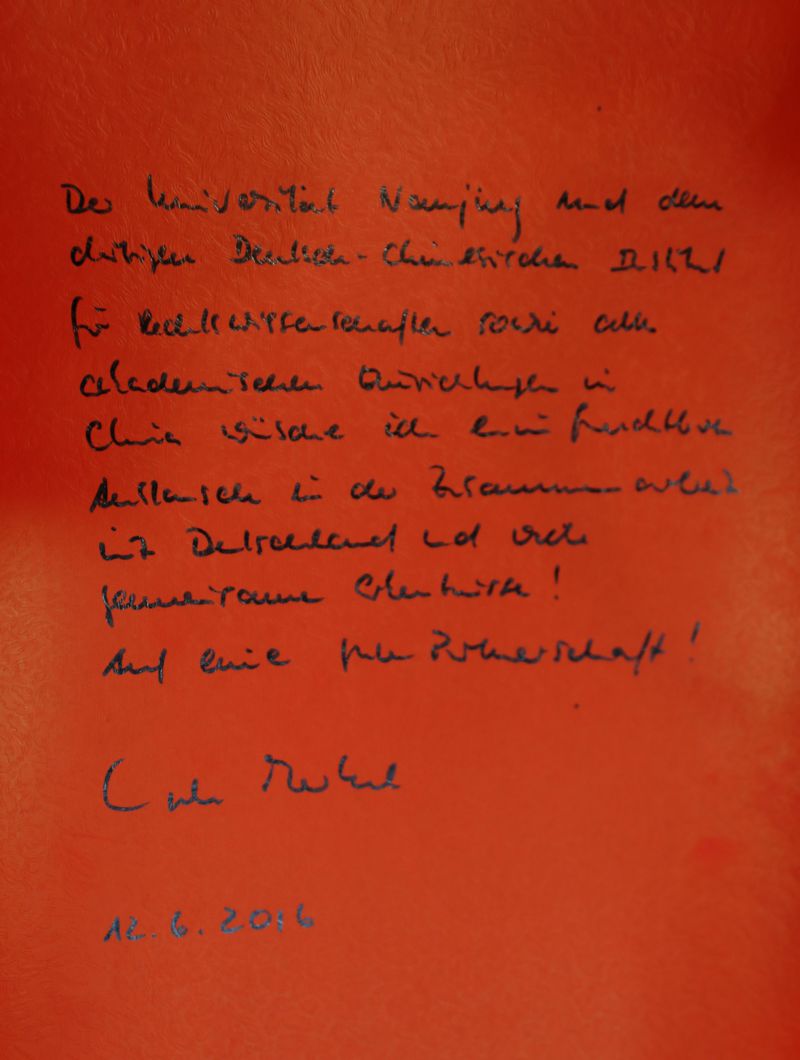 Der Universität Nanjing und dem
dortigen Deutsch-Chinesischen Institut
für Rechtswissenschaften sowie allen
akademischen Einrichtungen in
China wünsche ich einen fruchtbaren
Austausch in der Zusammenarbeit
mit Deutschland und viele
gemeinsame Erkenntnisse!
Auf eine gute Partnerschaft!
Angela Merkel
12.6.2016